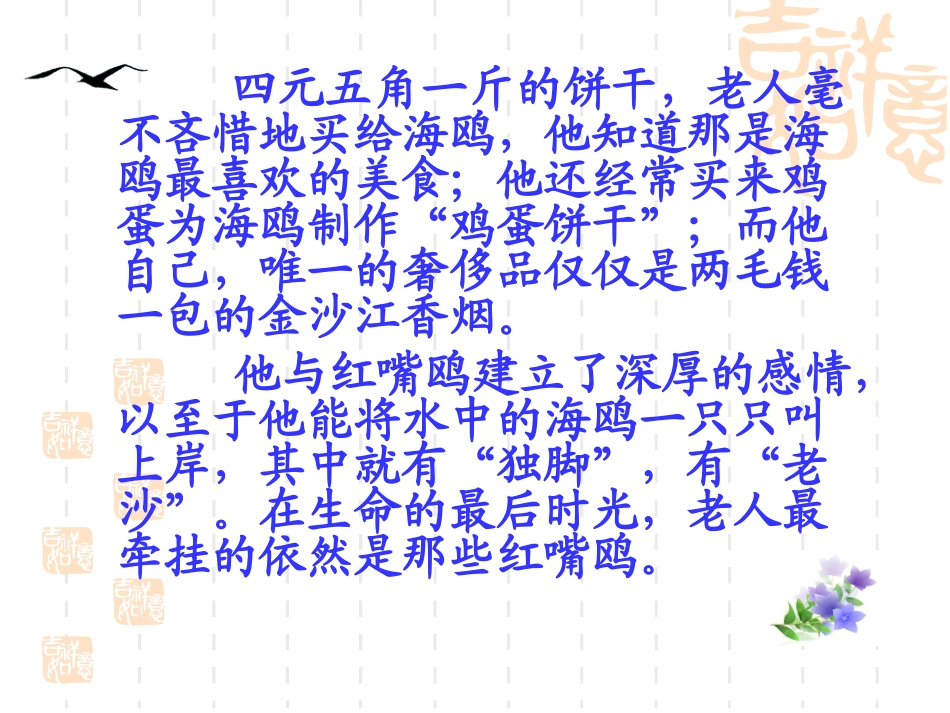 吉祥如意
四元五角一斤的饼干，老人毫
不吝惜地买给海鸥，他知道那是海
鸥最喜欢的美食；他还经常买来鸡
蛋为海鸥制作“鸡蛋饼干”；而他
自己，唯一的奢侈品仅仅是两毛钱
一包的金沙江香烟。
他与红嘴鸥建立了深厚的感情，
以至于他能将水中的海鸥一只只叫
上岸，其中就有“独脚”，有“老
沙”。在生命的最后时光，老人最
牵挂的依然是那些红嘴鸥。
吉祥如意
吉祥如意
吉祥如意
吉祥如意
吉祥如意
吉祥如意